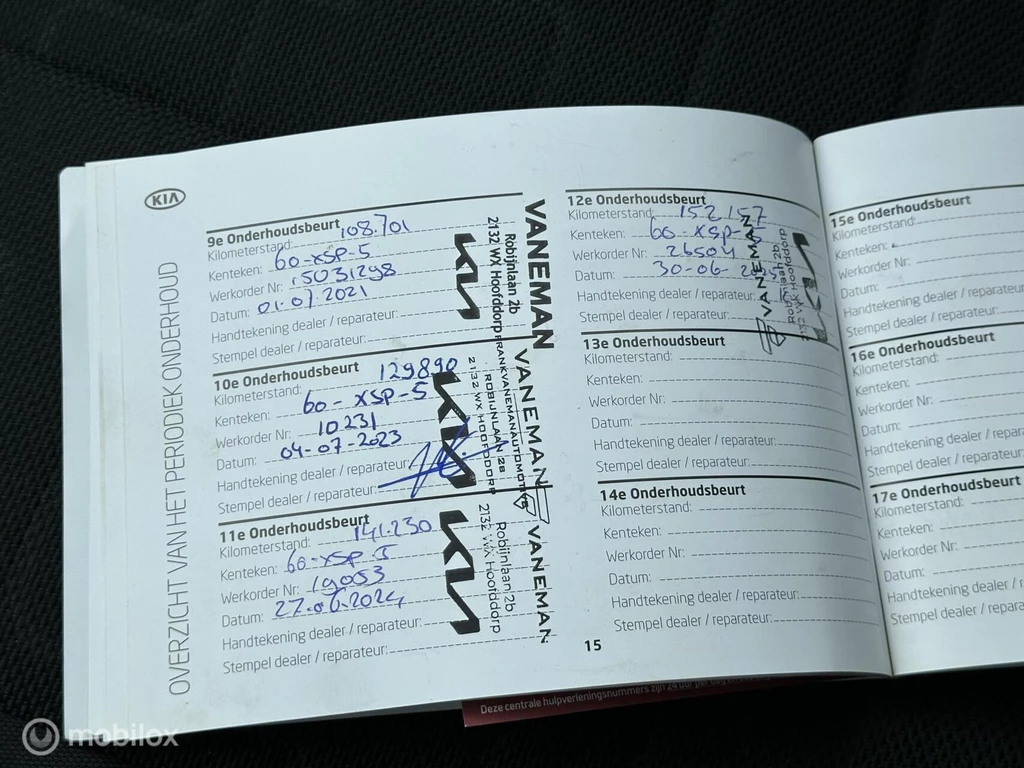 KIA
OVERZICHT VAN HET PERIODIEK ONDERHOUD
9e Onderhoudsbeurt
Kilometerstand: 108.701
Kenteken: 60-XSP-5
Werkorder Nr: 15031298
Datum: 01.07.2021
Handtekening dealer / reparateur:
Stempel dealer / reparateur:
KIA
VANEMAN
Robijnlaan 2b
2132 WX Hoofddorp
10e Onderhoudsbeurt
Kilometerstand: 129890
Kenteken: 60-XSP-5
Werkorder Nr: 10231
Datum: 04-07-2023
Handtekening dealer / reparateur:
Stempel dealer / reparateur:
KIA
VANEMAN
FRANKVANEMANAUTOMOTIVE
ROBIJNLAAN 2B
2132 WX HOOFDDORP
11e Onderhoudsbeurt
Kilometerstand: 141.230
Kenteken: 60-XSP-5
Werkorder Nr: 19053
Datum: 27.06.2024
Handtekening dealer / reparateur:
Stempel dealer / reparateur:
KIA
VANEMAN
Robijnlaan 2b
2132 WX Hoofddorp
12e Onderhoudsbeurt
Kilometerstand: 152157
Kenteken: 60-XSP-
Werkorder Nr: 26504
Datum: 30-06-
Handtekening dealer / reparateur:
Stempel dealer / reparateur:
VANEMAN
Robijnlaan 2b
2132 WX Hoofddorp
13e Onderhoudsbeurt
Kilometerstand:
Kenteken:
Werkorder Nr:
Datum:
Handtekening dealer / reparateur:
Stempel dealer / reparateur:
14e Onderhoudsbeurt
Kilometerstand:
Kenteken:
Werkorder Nr:
Datum:
Handtekening dealer / reparateur:
Stempel dealer / reparateur:
15
15e Onderhoudsbeurt
Kilometerstand:
Kenteken:
Werkorder Nr:
Datum:
Handtekening dealer / reparateur
Stempel dealer / reparateur:
16e Onderhoudsbeurt
Kilometerstand:
Kenteken:
Werkorder Nr:
Datum:
Handtekening dealer / repara
Stempel dealer / reparateur
17e Onderhoudsbeurt
Kilometerstand:
Kenteken:
Werkorder Nr:
Datum:
Handtekening dealer / repara
Stempel dealer / reparateu
Deze centrale hulpverleningsnummers zijn 24 uur per dag
mobilox